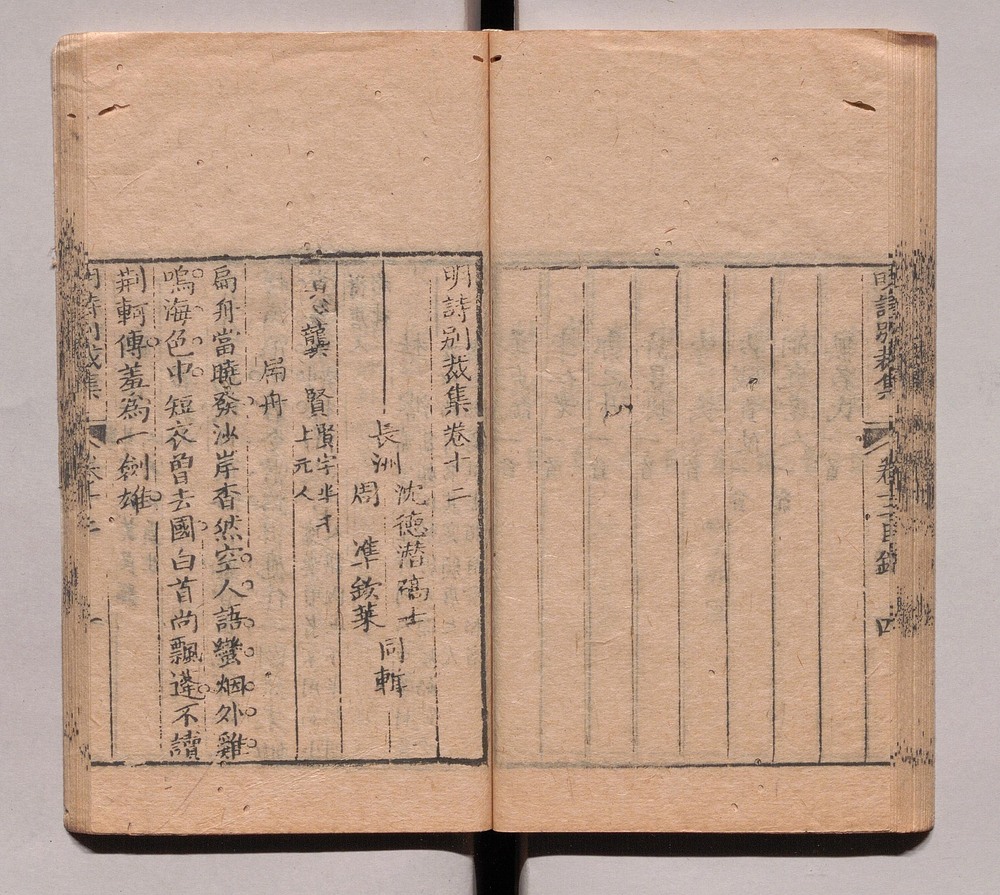 明詩別裁集
卷十二目錄
四
明詩別裁集卷十二
長洲
沈德潛確士
周準欽萊
同輯
龔賢
賢字半千
上元人
扁舟
扁舟當曉發沙岸杳然空人語蠻烟外雞
鳴海色中短衣曾去國白首尚飄蓬不讀
荆軻傳羞爲一劍雄
明詩別裁集
卷十二
一